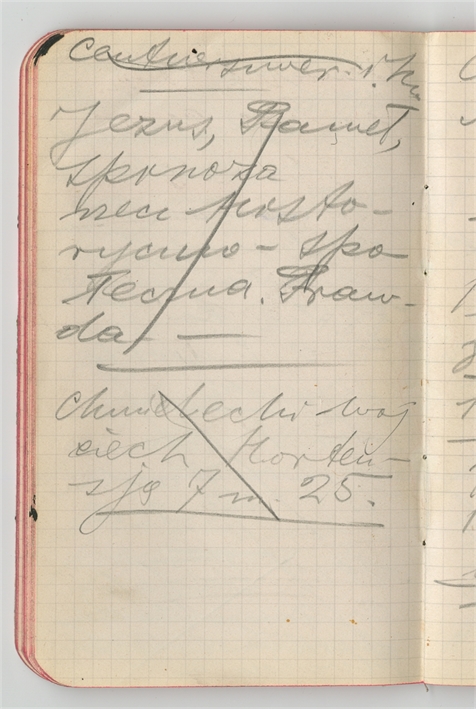 Jezus, Hamlet,
Spinoza
rzecz history-
ryczno - spo
łeczna. Praw-
da —
Chmielecki Woj
ciech Horten-
sja 7 m. 25.